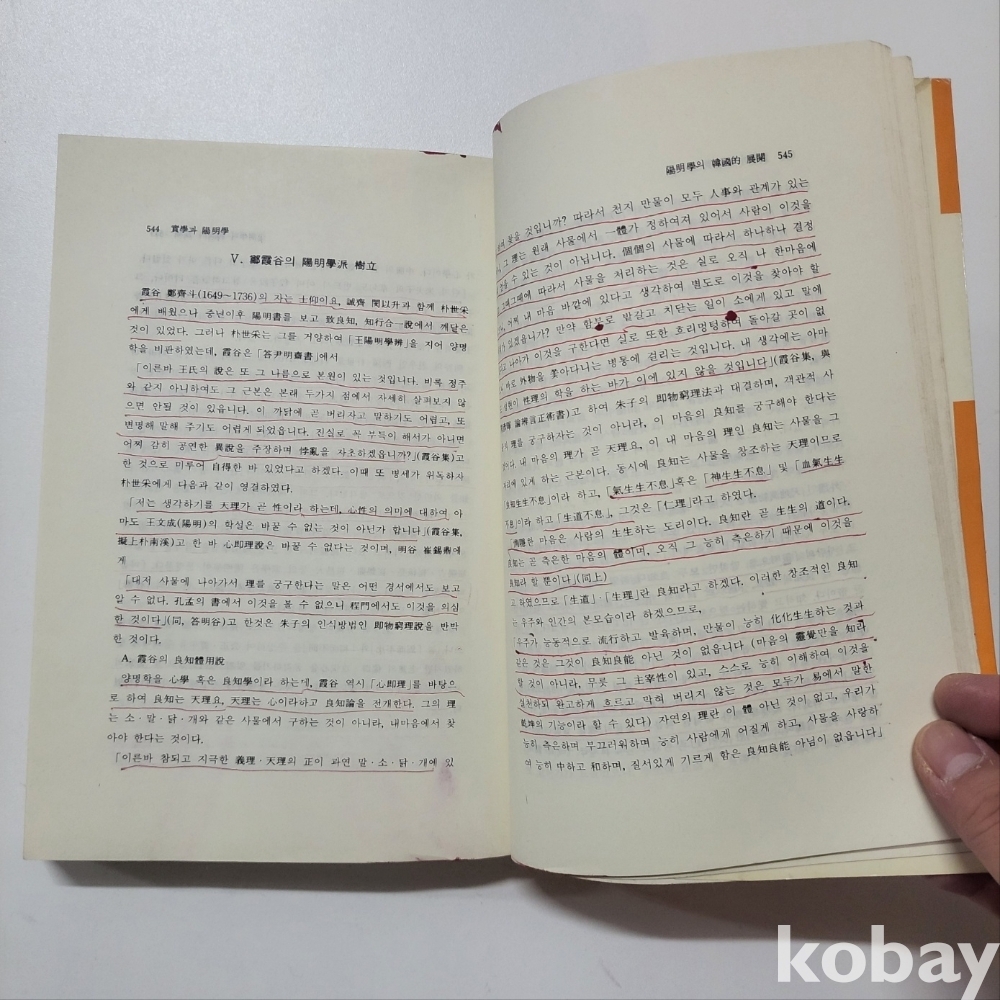 544 實學과 陽明學
V. 鄭霞谷의 陽明學派 樹立
霞谷 鄭齊斗(1649~1736)의 자는 士仰이요, 誠齊 閔以升과 함께 朴世采
에게 배웠으나 중년이후 陽明書를 보고 致良知, 知行合一說에서 깨달은
것이 있었다. 그러나 朴世采는 그를 거양하여 「王陽明學辨」을 지어 양명
학을 비판하였는데, 霞谷은 「答尹明齋書」에서
「이른바 王氏의 說은 또 그 나름으로 본원이 있는 것입니다. 비록 정주
와 같지 아니하여도 그 근본은 본래 두가지 점에서 자세히 살펴보지 않
으면 안될 것이 있읍니다. 이 까닭에 곧 버리자고 말하기도 어렵고, 또
변명해 말해 주기도 어렵게 되었읍니다. 진실로 꼭 부득이 해서가 아니면
어찌 감히 공연한 異說을 주장하며 悖亂을 자초하겠읍니까?」(霞谷集)고
한 것으로 미루어 自得한 바 있었다고 하겠다. 이때 또 명세가 위독하자
朴世采에게 다음과 같이 영결하였다.
「저는 생각하기를 天理가 곧 性이라 하는데, 心性의 의미에 대하여 아
마도 王文成(陽明)의 학설은 바꿀 수 없는 것이 아닌가 합니다」(霞谷集,
擬上朴南溪)고 한 바 心即理說은 바꿀 수 없다는 것이며, 明谷 崔錫鼎에
게
「대저 사물에 나아가서 理를 궁구한다는 말은 어떤 경서에서도 보고
알 수 없다. 孔孟의 書에서 이것을 볼 수 없으니 程門에서도 이것을 의심
한 것이다」(同, 答明谷)고 한것은 朱子의 인식방법인 即物窮理說을 반박
한 것이다.
A. 霞谷의 良知體用說
양명학을 心學 혹은 良知學이라 하는데, 霞谷 역시 「心即理」를 바탕으
로 하여 良知는 天理요, 天理는 心이라하고 良知論을 전개한다. 그의 理
는 소·말·닭·개와 같은 사물에서 구하는 것이 아니라, 내마음에서 찾
아야 한다는 것이다.
「이른바 참되고 지극한 義理·天理의 正이 과연 말·소·닭·개에 있
陽明學의 韓國的 展開 545
찾을 것입니까? 따라서 천지 만물이 모두 人事와 관계가 있는
그 理는 원래 사물에서 一體가 정하여져 있어서 사람이 이것을
수 있는 것이 아닙니다. 個個의 사물에 따라서 하나하나 결정
따라서 사물을 처리하는 것은 실로 오직 나 한마음에
어찌 내 마음 바깥에 있다고 생각하여 별도로 이것을 찾아야 할
있겠읍니까? 만약 함부로 발갈고 치닫는 일이 소에게 있고 말에
나아가 이것을 구한다면 실로 또한 흐리멍텅하며 돌아갈 곳이 없
바로 外物을 쫓아다니는 병통에 걸리는 것입니다. 내 생각에는 아마
성현이 性理의 학을 하는 바가 이에 있지 않을 것입니다」(霞谷集, 與
論辨言正術書)고 하여 朱子의 即物窮理法과 대결하며, 객관적 사
理를 궁구하자는 것이 아니라, 이 마음의 良知를 궁구해야 한다는
내 마음의 理가 곧 天理요, 이 내 마음의 理인 良知는 사물을 그
있게 하는 근본이다. 동시에 良知는 사물을 창조하는 天理이므로
「良知生生不息」이라 하고, 「氣生生不息」혹은 「神生生不息」 및 「血氣生生
不息」이라 하고 「生道不息」, 그것은 「仁理」라고 하였다.
惻隱한 마음은 사람의 生生하는 도리이다. 良知란 곧 生生의 道이다.
良知는 곧 측은한 마음의 體이며, 오직 그 능히 측은하기 때문에 이것을
良知라 할 뿐이다」(同上)
고 하였으므로 「生道」·「生理」란 良知라고 하겠다. 이러한 창조적인 良知
는 우주와 인간의 본모습이라 하겠으므로,
「우주가 능동적으로 流行하고 발육하며, 만물이 능히 化化生生하는 것과
같은 것은 그것이 良知良能 아닌 것이 없읍니다 (마음의 靈覺만을 知라
할 것이 아니라, 무릇 그 主宰性이 있고, 스스로 능히 이해하여 이것을
실천하되 완고하게 흐르고 막혀 버리지 않는 것은 모두가 易에서 말한
乾坤의 기능이라 할 수 있다) 자연의 理란 이 體 아닌 것이 없고, 우리가
능히 측은하며 부끄러워하며 능히 사람에게 어질게 하고, 사물을 사랑하
여 능히 中하고 和하며, 질서있게 기르게 함은 良知良能 아님이 없읍니다」
kobay